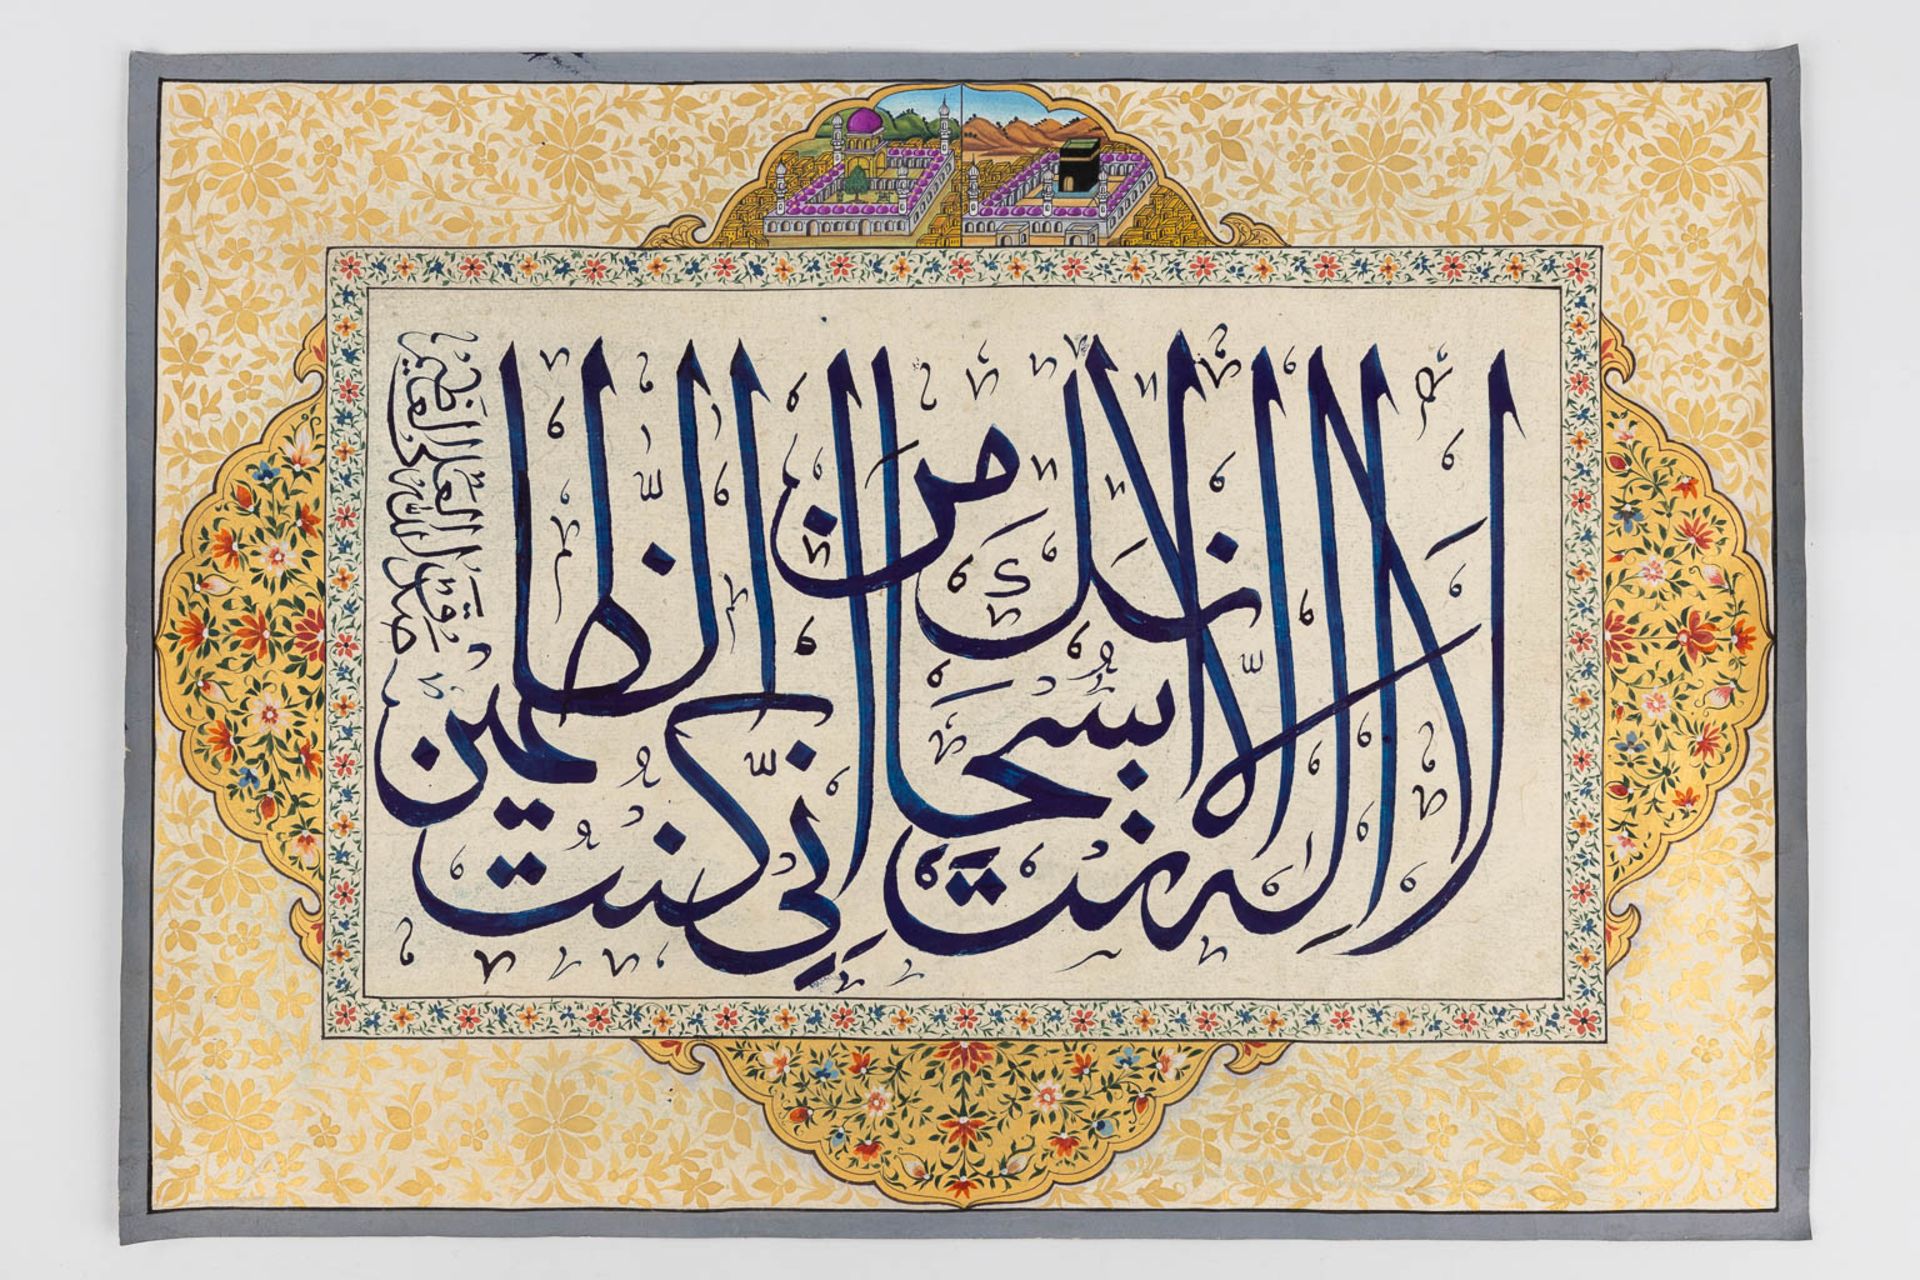 لا إله إلا أنت سبحانك إني كنت من الظالمين
صدق الله العلي العظيم